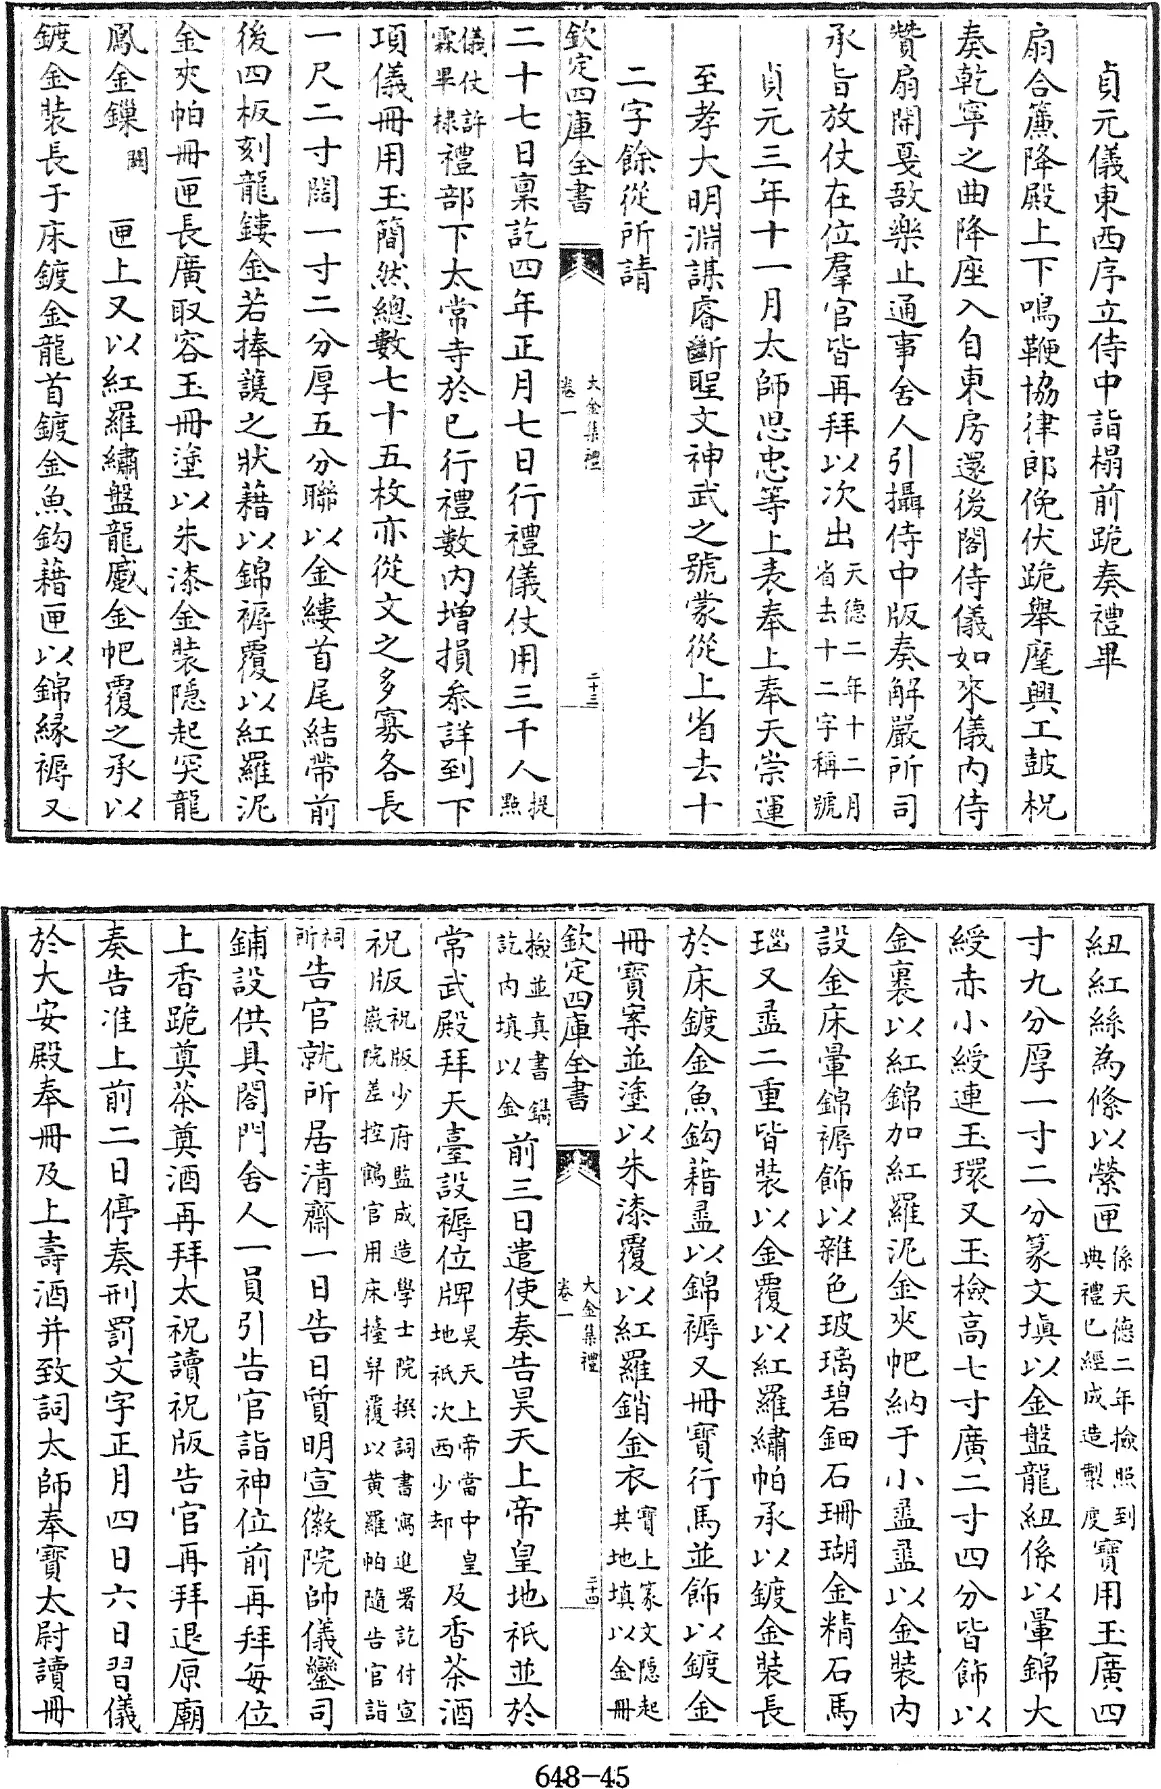 貞元儀東西序立侍中詣榻前跪奏禮畢
扇合簾降殿上下鳴鞭協律郎俛伏跪舉麾興工鼓柷
奏乾寧之曲降座入自東房還後閣侍儀如來儀內侍
贊扇開戞敔樂止通事舍人引攝侍中版奏解嚴所司
承旨放仗在位羣官皆再拜以次出天德二年十二月省去十二字稱號
貞元三年十一月太師思忠等上表奉上奉天崇運
至孝大明淵謀睿斷聖文神武之號蒙從上省去十
二字餘從所請
欽定四庫全書 大金集禮卷一 二十三
二十七日稟訖四年正月七日行禮儀仗用三千人提點
儀仗許霖畢棣禮部下太常寺於已行禮數內增損叅詳到下
項儀冊用玉簡然總數七十五枚亦從文之多寡各長
一尺二寸闊一寸二分厚五分聯以金縷首尾結帶前
後四板刻龍鏤金若捧護之狀藉以錦褥覆以紅羅泥
金夾帕冊匣長廣取容玉冊塗以朱漆金裝隱起突龍
鳳金鏁闕匣上又以紅羅繡盤龍蹙金帊覆之承以
鍍金裝長于床鍍金龍首鍍金魚鈎藉匣以錦緣褥又
紐紅絲為絛以縈匣係天德二年檢照到典禮已經成造製度寶用玉廣四
寸九分厚一寸二分篆文塡以金盤龍紐係以暈錦大
綬赤小綬連玉環又玉檢高七寸廣二寸四分皆飾以
金裏以紅錦加紅羅泥金夾帊納于小盝盝以金裝內
設金床暈錦褥飾以雜色玻璃碧鈿石珊瑚金精石馬
瑙又盝二重皆裝以金覆以紅羅繡帕承以鍍金裝長
於床鍍金魚鈎藉盝以錦褥又冊寶行馬並飾以鍍金
冊寶案並塗以朱漆覆以紅羅銷金衣寶上篆文隱起其地塡以金冊
欽定四庫全書 大金集禮卷一 二十四
檢並真書鐫訖內塡以金前三日遣使奏告昊天上帝皇地祇並於
常武殿拜天臺設褥位牌昊天上帝當中皇地祇次西少却及香茶酒
祝版祝版少府監成造學士院撰詞書寫進署訖付宣徽院差控鶴官用床擡舁覆以黃羅帕隨告官詣
祠所告官就所居清齋一日告日質明宣徽院帥儀鑾司
鋪設供具閣門舍人一員引告官詣神位前再拜每位
上香跪奠茶奠酒再拜太祝讀祝版告官再拜退原廟
奏告准上前二日停奏刑罰文字正月四日六日習儀
於大安殿奉冊及上壽酒并致詞太師奉寶太尉讀冊
648-45